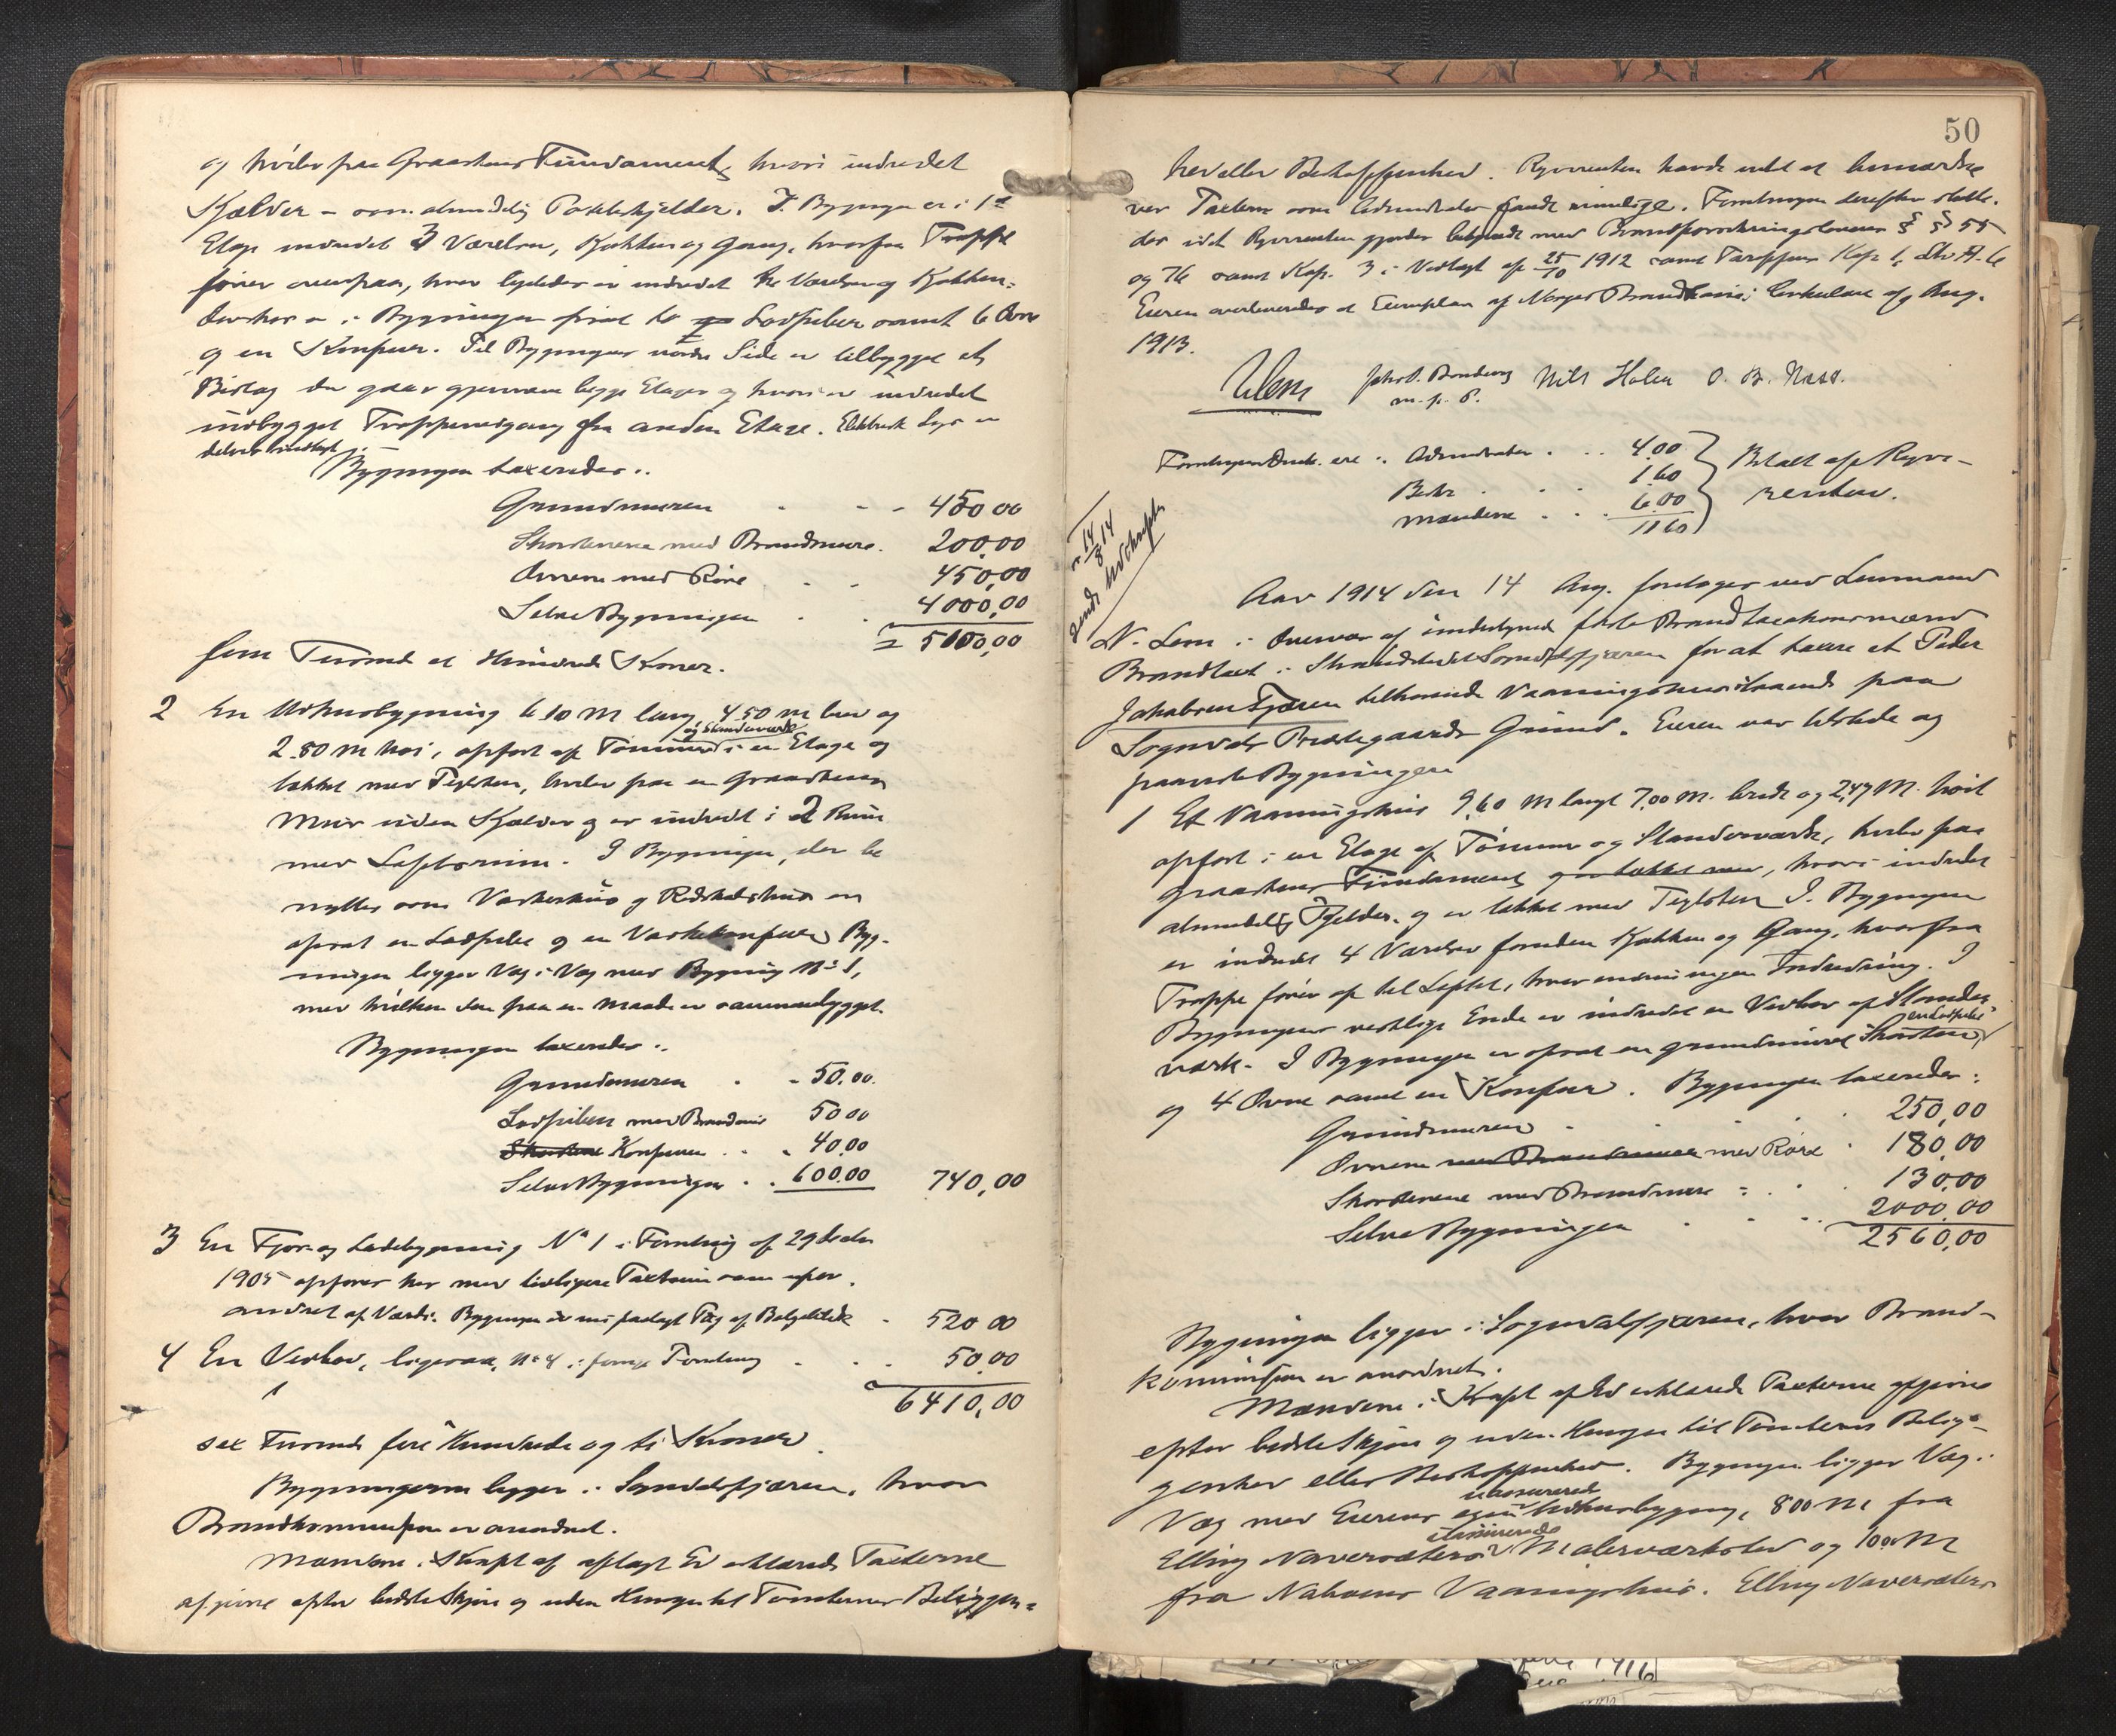 og hviler paa Graastens Fundament, hvori indredet
Kjælder – som almindelig Potetkjelder. I Bygningen er i 1ste
Etage indredet 3 Værelser, Kjøkken og Gang, hvorfra Trappe
fører ovenpaa, hvor ligeledes er indredet tre Værelser og Kjøkken.
Derhos er i Bygningen to Ladpiber samt 6 Ovne
og en Komfur. Til Bygningens nordre Side er tilbygget et
Bislag der gaar gjennem begge Etager og hvori er indredet
indbygget Trappenedgang fra anden Etage. Elektrisk Lys er
delvis indlagt.
Bygningen taxeredes:
Grundmuren 450,00
Skorstenene med Brandmure 200,00
Ovnene med Röre 450,00
Selve Bygningen 4000,00
= 5100,00
fem Tusend et Hundred Kroner.
2 En Udhusbygning 6.10 M lang, 4.50 m bred og
og Standerværk
2.80 m høi, opført af Tømmer i en Etage og
tækket med Teglsten, hviler paa en Graastens
Mur uden Kjælder og er indredet i 2 Rum
med Loftsrum. I Bygningen, der be
nyttes som Vaskehus og Redskabshus er
opsat en Ladpibe og en Vaskekomfur. Byg-
ningen ligger Væg i Væg med Bygning No 1,
med hvilken den paa en Maade er sammenbygget.
Bygningen taxeredes:
Grundmuren 50.00.
Ladpiben med Brandmur 50 00
Skorstene Komfuren 40.00
Selve Bygningen 600.00 740,00
3 En Fjøs og Ladebygning No 1 i Forretning af 29 Decbr
1905 opføres her med tidligere Taxtsum som ufor
andret af Værdi. Bygningen er nu paalagt Tag af Bølgeblik 520 00
4 En Vedbod, ligesaa, No 4 i samme Forretning 50.00
6410,00
sex Tusend fire Hundrede og ti Kroner.
Bygningerne ligger i Sogndalsfjæren, hvor
Brandkommission er anordnet.
Mændene i Kraft af aflagt Ed erklærede Taxterne
afgivne efter bedste Skjøn og uden Hensyn til Tomternes Beliggen-
50
hed eller Beskaffenhed. Rqvirenten havde intet at bemærke
ved Taxterne som Administrator fandt rimelige. Forretningen derefter sluttet.
der idet Rqvirenten gjordes bekjendt med Brandforsikringslovens § § 55
og 76 samt Kap. 3 i Vedtægt af 25/10 1912 samt Tariffens Kap 6, Litr A. 6
Eieren overleveredes et Exemplar af Norges Brandkasses Cirkulære af Aug.
1913.
N Lem Nils Holen O. B. Næss.
m. p. P.
Forretningens Omk. ere: Administrator 4.00
Bedr 1.60
Mændene 6.00
11 60
Betalt af Rqvi-
renten.
14/8 14
sendt Udskrift
Aar 1914 den 14 Aug. foretoges ved Lensmand
N. Lem i Overvær af undertegnede faste Brandtaxationsmænd
Brandtaxt i Strandstedet Sogndalsfjæren for at taxere et Peder
Jakobsen Fjæren tilhørende Vaaningshus staaende paa
Sogndals Prestegaards Grund. Eieren var tilstede og
paaviste Bygningen
1 Et Vaaningshus 9,60 M langt 7,00 M. bredt og 2,47 M. høit
opført i en Etage af Tømmer og Standerværk, hviler paa
Graastens Fundament og er tækket med, hvori indredet
almindelig Kjelder, og er tækket med Teglsten. I Bygningen
er indredet 4 Værelser foruden Kjøkken og Gang, hvorfra
Trappe fører op til Loftet, hvor endnu ingen Indredning. I
Bygningens vestlige Ende er indredet en Vedbod af Stander-
en Ladpibe
værk. I Bygningen er opsat en grundmuret Skorsten
og 4 Ovne samt en Komfur. Bygningen taxeredes:
Grundmuren 250,00
Ovnene med Brandmuren med Röre 180,00
Skorstenene med Brandmure 130,00
Selve Bygningen 2000,00
2560,00
Bygningen ligger i Sogndalsfjæren, hvor Brand-
kommission er anordnet.
Mændene i Kraft af Ed erklærede Taxterne afgivne
efter bedste Skjøn og uden Hensyn til Tomternes Belig-
genhed eller Beskaffenhed. Bygningen ligger Væg i
uassurered
Væg med Eierens egen Udhusbygning, 8,00 M fra
Elling Navarsæters Malerværksted og 10,00 M
fra Naboens Vaaningshus. Elling Navarsæters